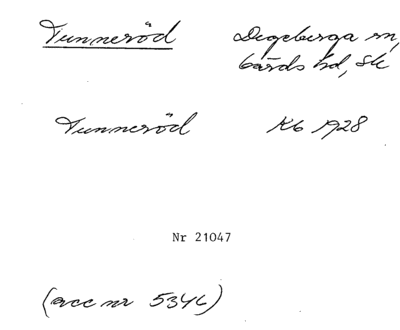 Tunneröd Degeberga sn,
Gärds hd, Sk
Tunneröd Kb 1928
Nr 21047
(acc nr 5346)